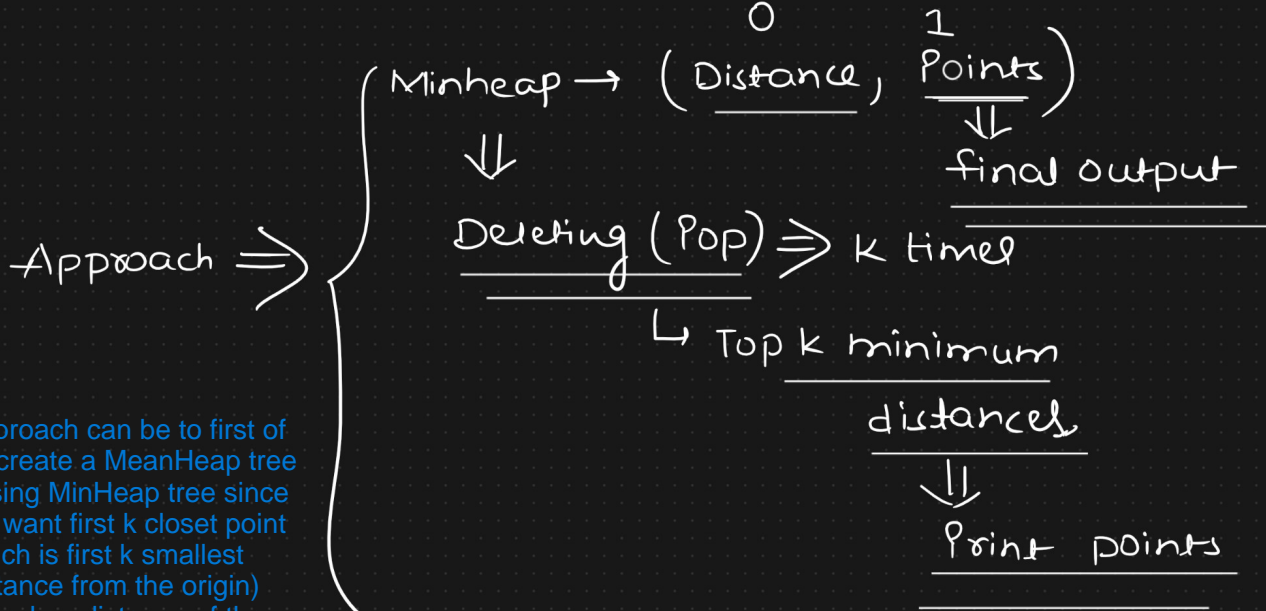 0 1
Minheap → (Distance, Points)
⇓ ⇓
final output
Approach ⇒
Deleting (Pop) ⇒ K times
↳ Top k minimum
distances
⇓
Print points
proach can be to first of
create a MeanHeap tree
sing MinHeap tree since
want first k closet point
ch is first k smallest
tance from the origin)